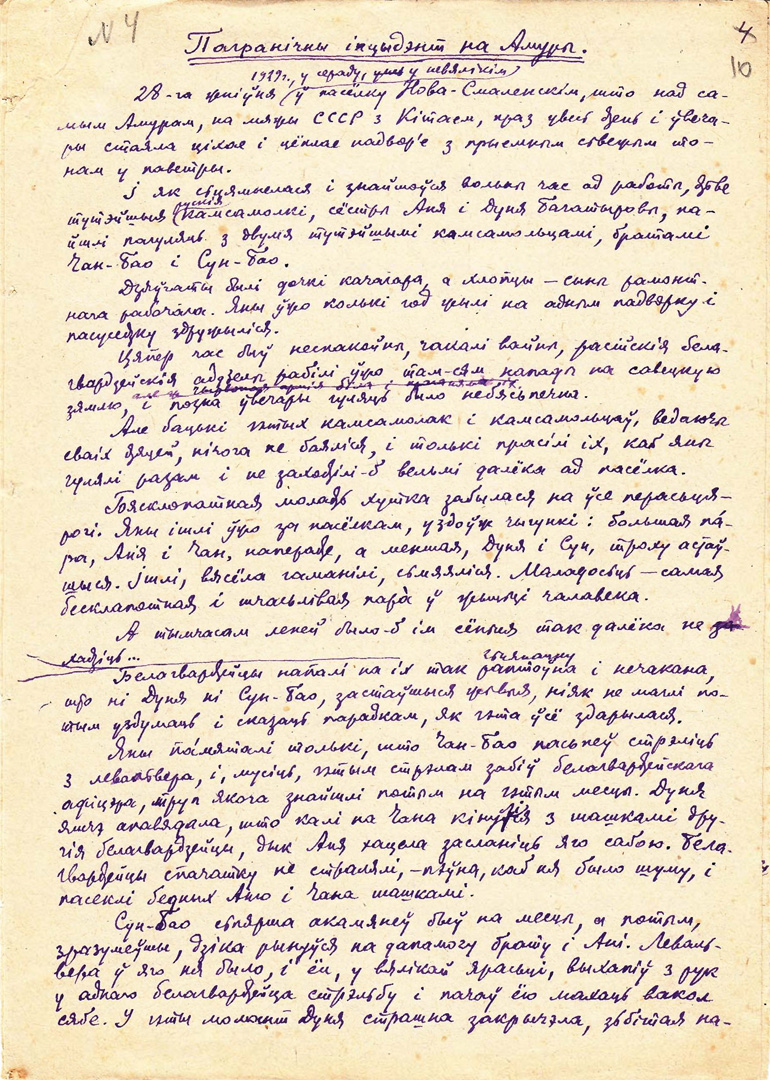 N 4
4
10
Пагранічны інцыдэнт на Амуры.
1929 г., у сераду, у невялікім
28-га жніўня ў пасёлку Нова-Смаленскім, што над са-
мым Амурам, на мяжы СССР з Кітаем, праз увесь дзень і ўвеча-
ры стаяла ціхае і цёплае надвор'е з прыемным свежым то-
нам у паветры.
І як сьцямнелася і знайшоўся вольны час ад работы, дзве
рускія
тутэйшыя камсамолкі, сёстры Аня і Дуня Багатыровы, па-
йшлі пагуляць з двумя тутэйшымі камсамольцамі, братамі
Чан-Бао і Сун-Бао.
Дзяўчаты былі дочкі качагара, а хлопцы — сыны рамонт-
нага рабочага. Яны ўжо колькі год жылі на адным падворку і
пасуседзку здружыліся.
Цяпер час быў неспакойны, чакалі вайны, расійскія бела-
гвардзейскія адзелы рабілі ўжо там-сям напады на савецкую
зямлю, і позна ўвечары гуляць было небясьпечна.
Але бацькі гэтых камсамолак і камсамольцаў, ведаючы
сваіх дзяцей, нічога не баяліся, і толькі прасілі іх, каб яны
гулялі разам і не заходзілі-б вельмі далёка ад пасёлка.
Бясклопатная моладзь хутка забылася на ўсе перасьця-
рогі. Яны ішлі ўжо за пасёлкам, уздоўж чыгункі: большая па́-
ра, Аня і Чан, наперадзе, а меншая, Дуня і Сун, троху астаў-
шыся. Ішлі, вясёла гаманілі, сьмяяліся. Маладосьць — самая
бесклапотная і шчасьлівая пара̀ ў жыцьці чалавека.
А тымчасам лепей было-б ім сёньня так далёка не за
хадзіць...
Белагвардзейцы напалі на іх так раптоўна і нечакана,
што ні Дуня ні Сун-Бао, застаўшыся жывыя, ніяк не маглі по-
тым уздумаць і сказаць парадкам, як гэта ўсё здарылася.
Яны па́мяталі толькі, што Чан-Бао пасьпеў стрэліць
з левальвера, і, мусіць, гэтым стрэлам забіў белагвардзейскага
афіцэра, труп якога знайшлі потым на гэтым месцы. Дуня
яшчэ апавядала, што калі на Чана кінуліся з шашкамі дру-
гія белагвардзейцы, дык Аня хацела засланіць яго сабою. Бела-
гвардзейцы спачатку не стралялі, — пэўна, каб ня было шуму, і
пасеклі бедных Аню і Чана шашкамі.
Сун-Бао сьпярша акамянеў быў на месцы, а потым,
зразумеўшы, дзіка рынуўся на дапамогу брату і Ані. Леваль-
вера ў яго ня было, і ён, у вялікай ярасьці, выхапіў з рук
у аднаго белагвардзейца стрэльбу і пачаў ёю махаць вакол
сябе. У гэты момант Дуня страшна закрычэла, зьбітая на-